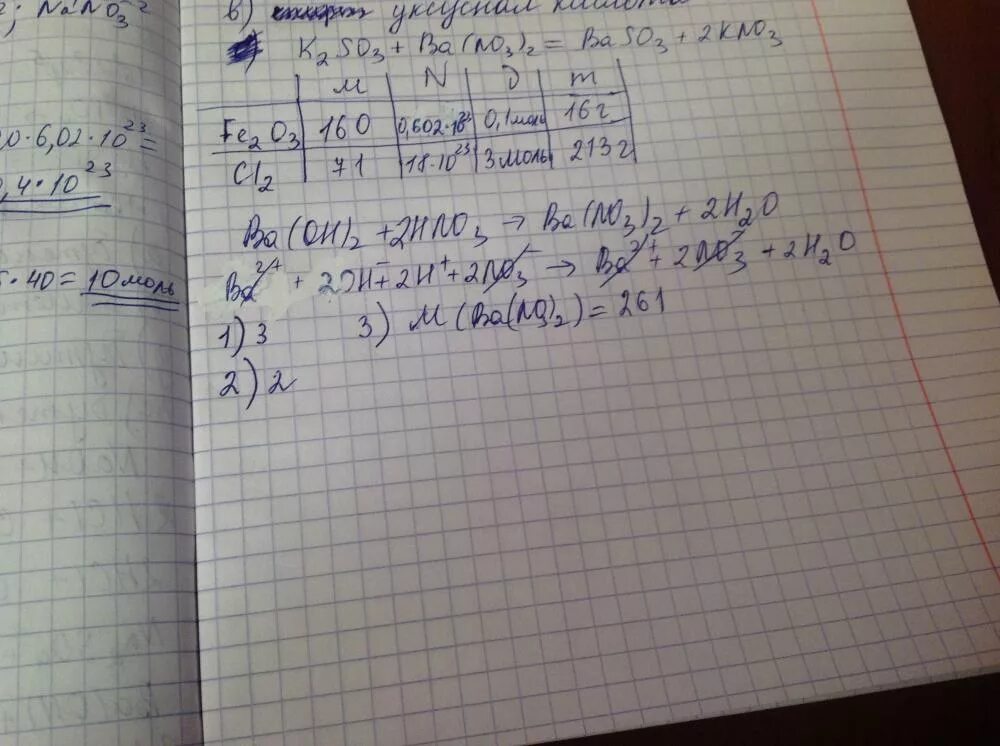 NaNO₃
0·6,02·10²³=
,4·10²³
·40=10моль
в) уксусная кислота
K₂SO₃+Ba(NO₃)₂=BaSO₃+2KNO₃
M N Д m
Fe₂O₃ 160 0,602·10²³ 0,1моль 16г
Cl₂ 71 18·10²³ 3моль 213г
Ba(OH)₂+2HNO₃→Ba(NO₃)₂+2H₂O
Ba²⁺+2OH⁻+2H⁺+2NO₃⁻→Ba²⁺+2NO₃⁻+2H₂O
1)3 3) M(Ba(NO₃)₂)=261
2)2